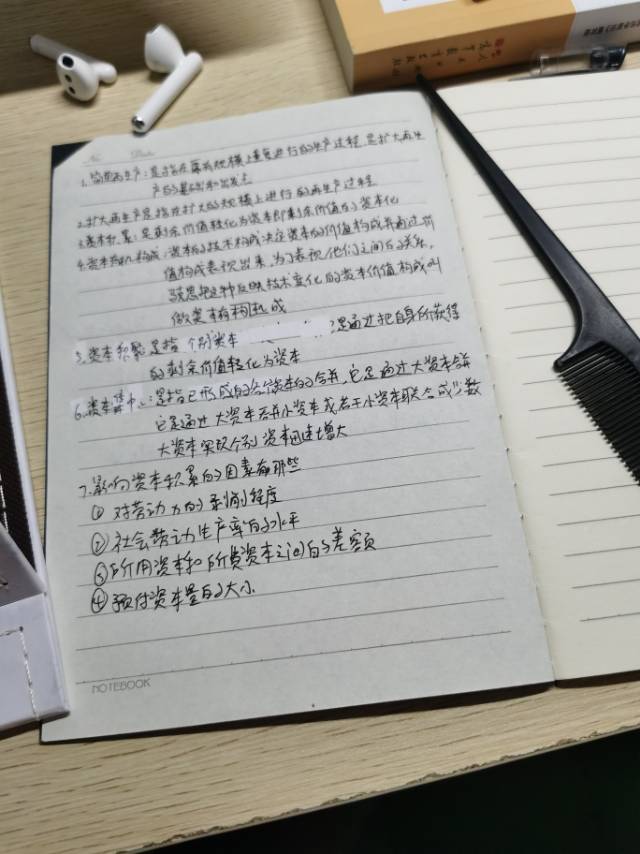 人
No. Date
1.简单再生产:是指在原有规模上重复进行的生产过程 是扩大再生
产的基础和出发点
2.扩大再生产是指在扩大的规模上进行的再生产过程
3.资本积累:是剩余价值转化为资本即剩余价值的资本化
4.资本有机构成:资本的技术构成决定资本的价值构成并通过价
值构成表现出来,为了表现他们之间的关系,
马克思把这种反映技术变化的资本价值构成叫
做资本有机构成
5.资本积聚是指个别资本 是通过把自身所获得
的剩余价值转化为资本
6.资本集中:是指已形成的各个资本的合并,它是通过大资本合并
它是通过大资本吞并小资本或若干小资本联合成少数
大资本实现个别资本迅速增大
7.影响资本积累的因素有那些
① 对劳动力的剥削程度
② 社会劳动生产率的水平
③ 所用资本和所费资本之间的差额
④ 预付资本量的大小
NOTEBOOK